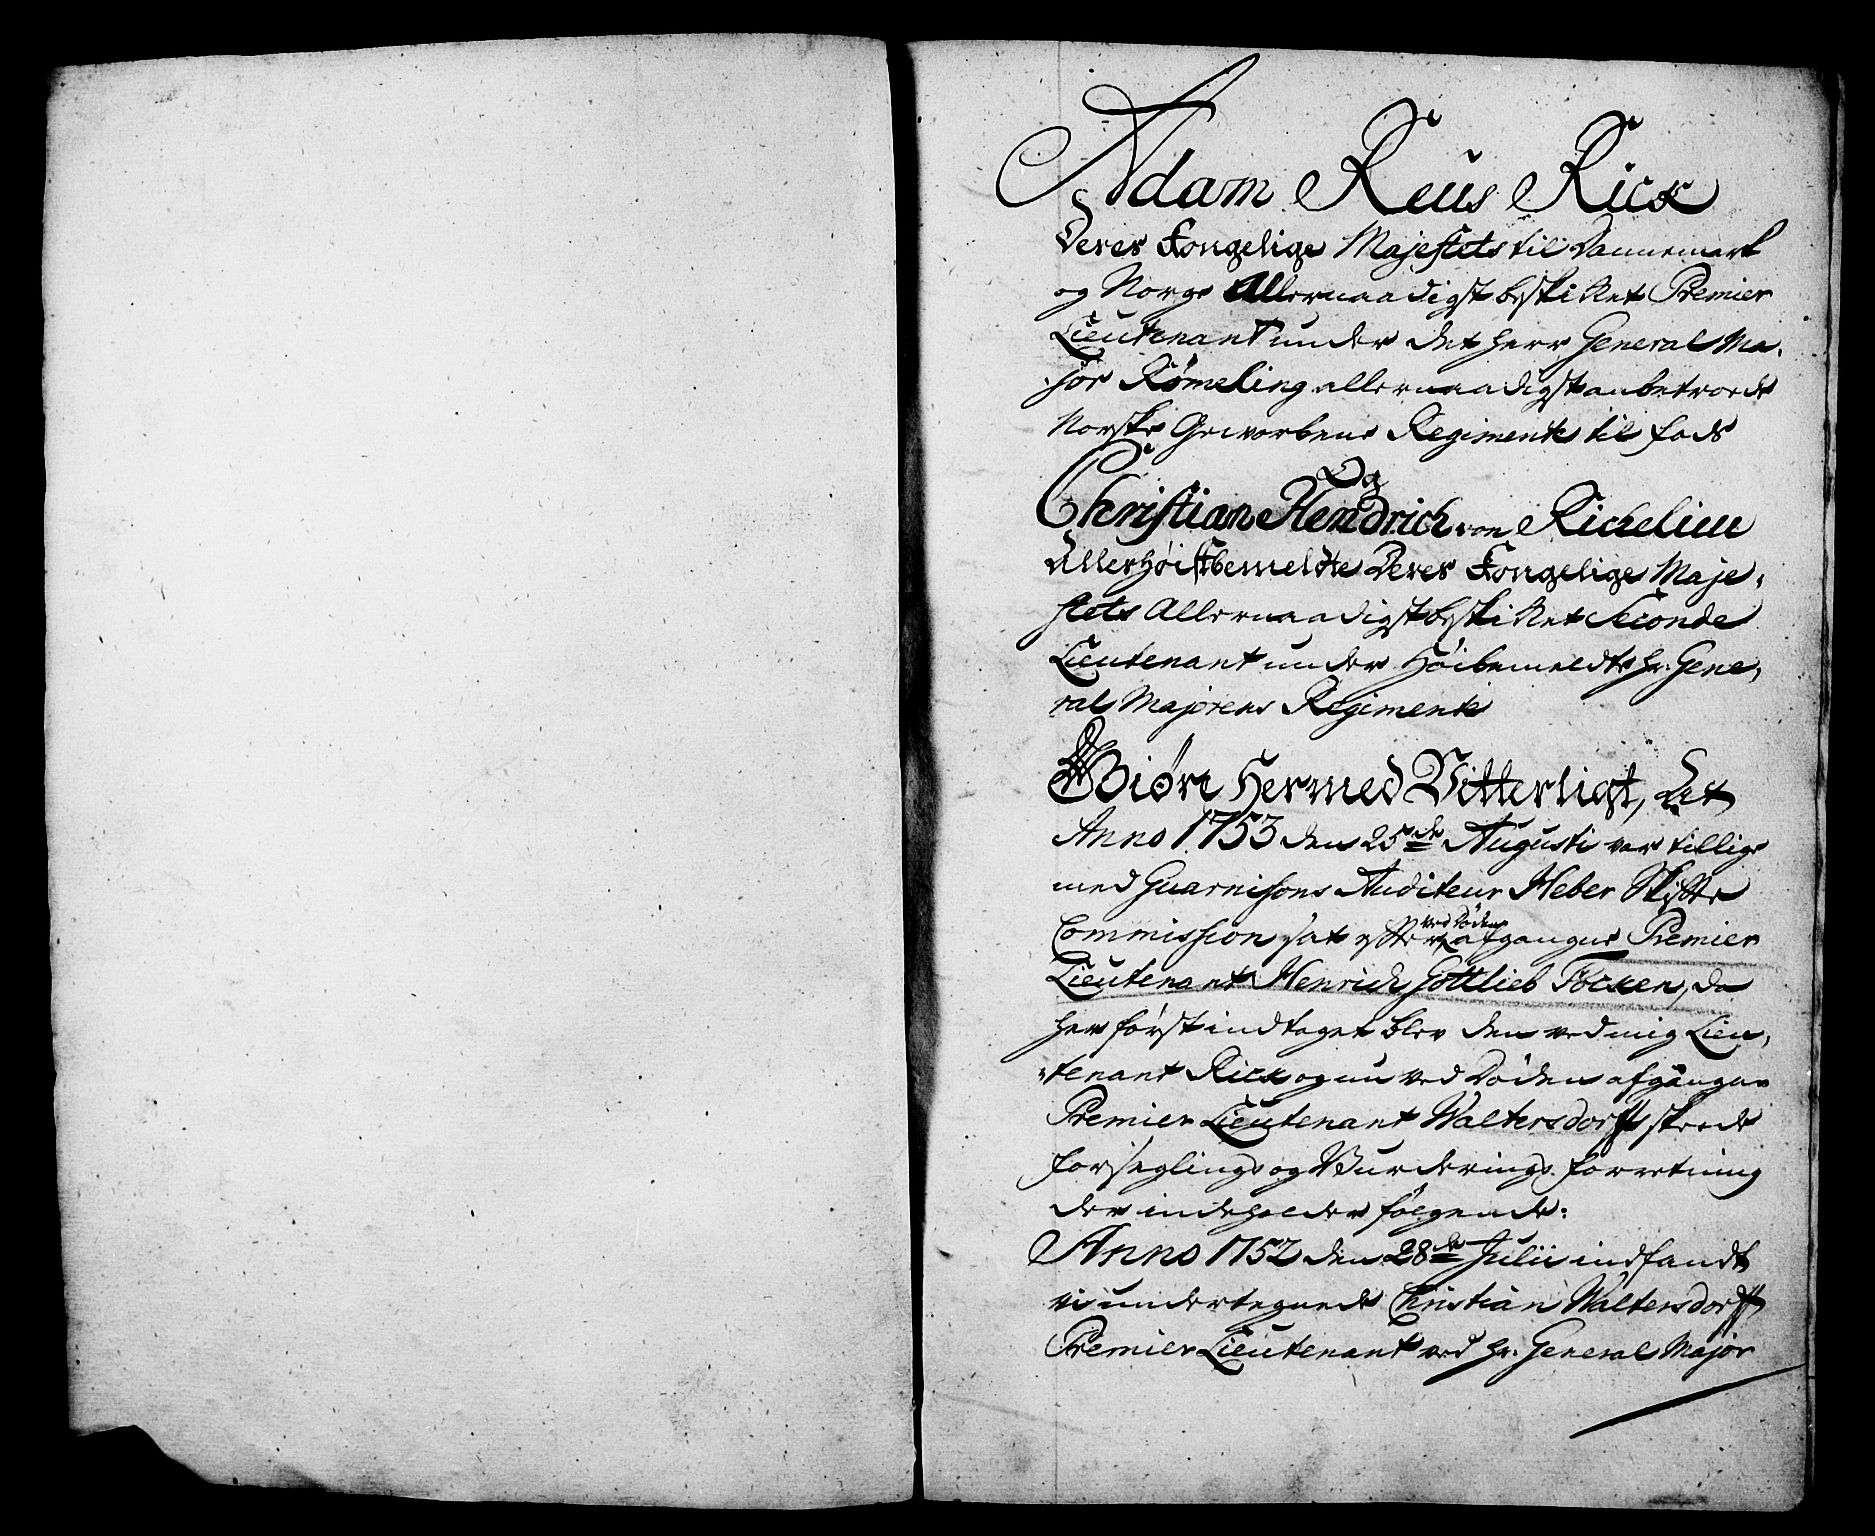 Adam Reus Rick
Deres Kongelige Majestets til Dannemark
og Norge Allernaadigst beskikket Premier
Lieutenant under det Herr General Ma-
jor Rømeling allernaadigst anbetroede
Norske Gevorbene Regimente til Fods
Og
Christian Hendrich von Richelieu
Allerhøistbemeldte Deres Kongelige Maje-
stets Allernaadigst beskikket Seconde
Lieutenant under Høibemeldte Hr. Gene-
ral Majorens Regimente
Giøre Hermed Vitterligt, At
Anno 1753 den 25de Augusti var tillige
med Guarnisons Auditeur Heber Skifte
Commission sat efter ved Døden afgangne Premier
Lieutenant Henrich Gottlieb Föcken, da
her først indtaget blev den ved mig Lieu-
tenant Rick og nu ved Døden afgangen
Premier Lieutenant Waltersdorff skeede
Forseglings og Vurderings Forretning
der indeholder følgende:
Anno 1752 den 28de Julii indfandt
vi undertegnede Christian Waltersdorff
Premier Lieutenant ved Hr. General Major